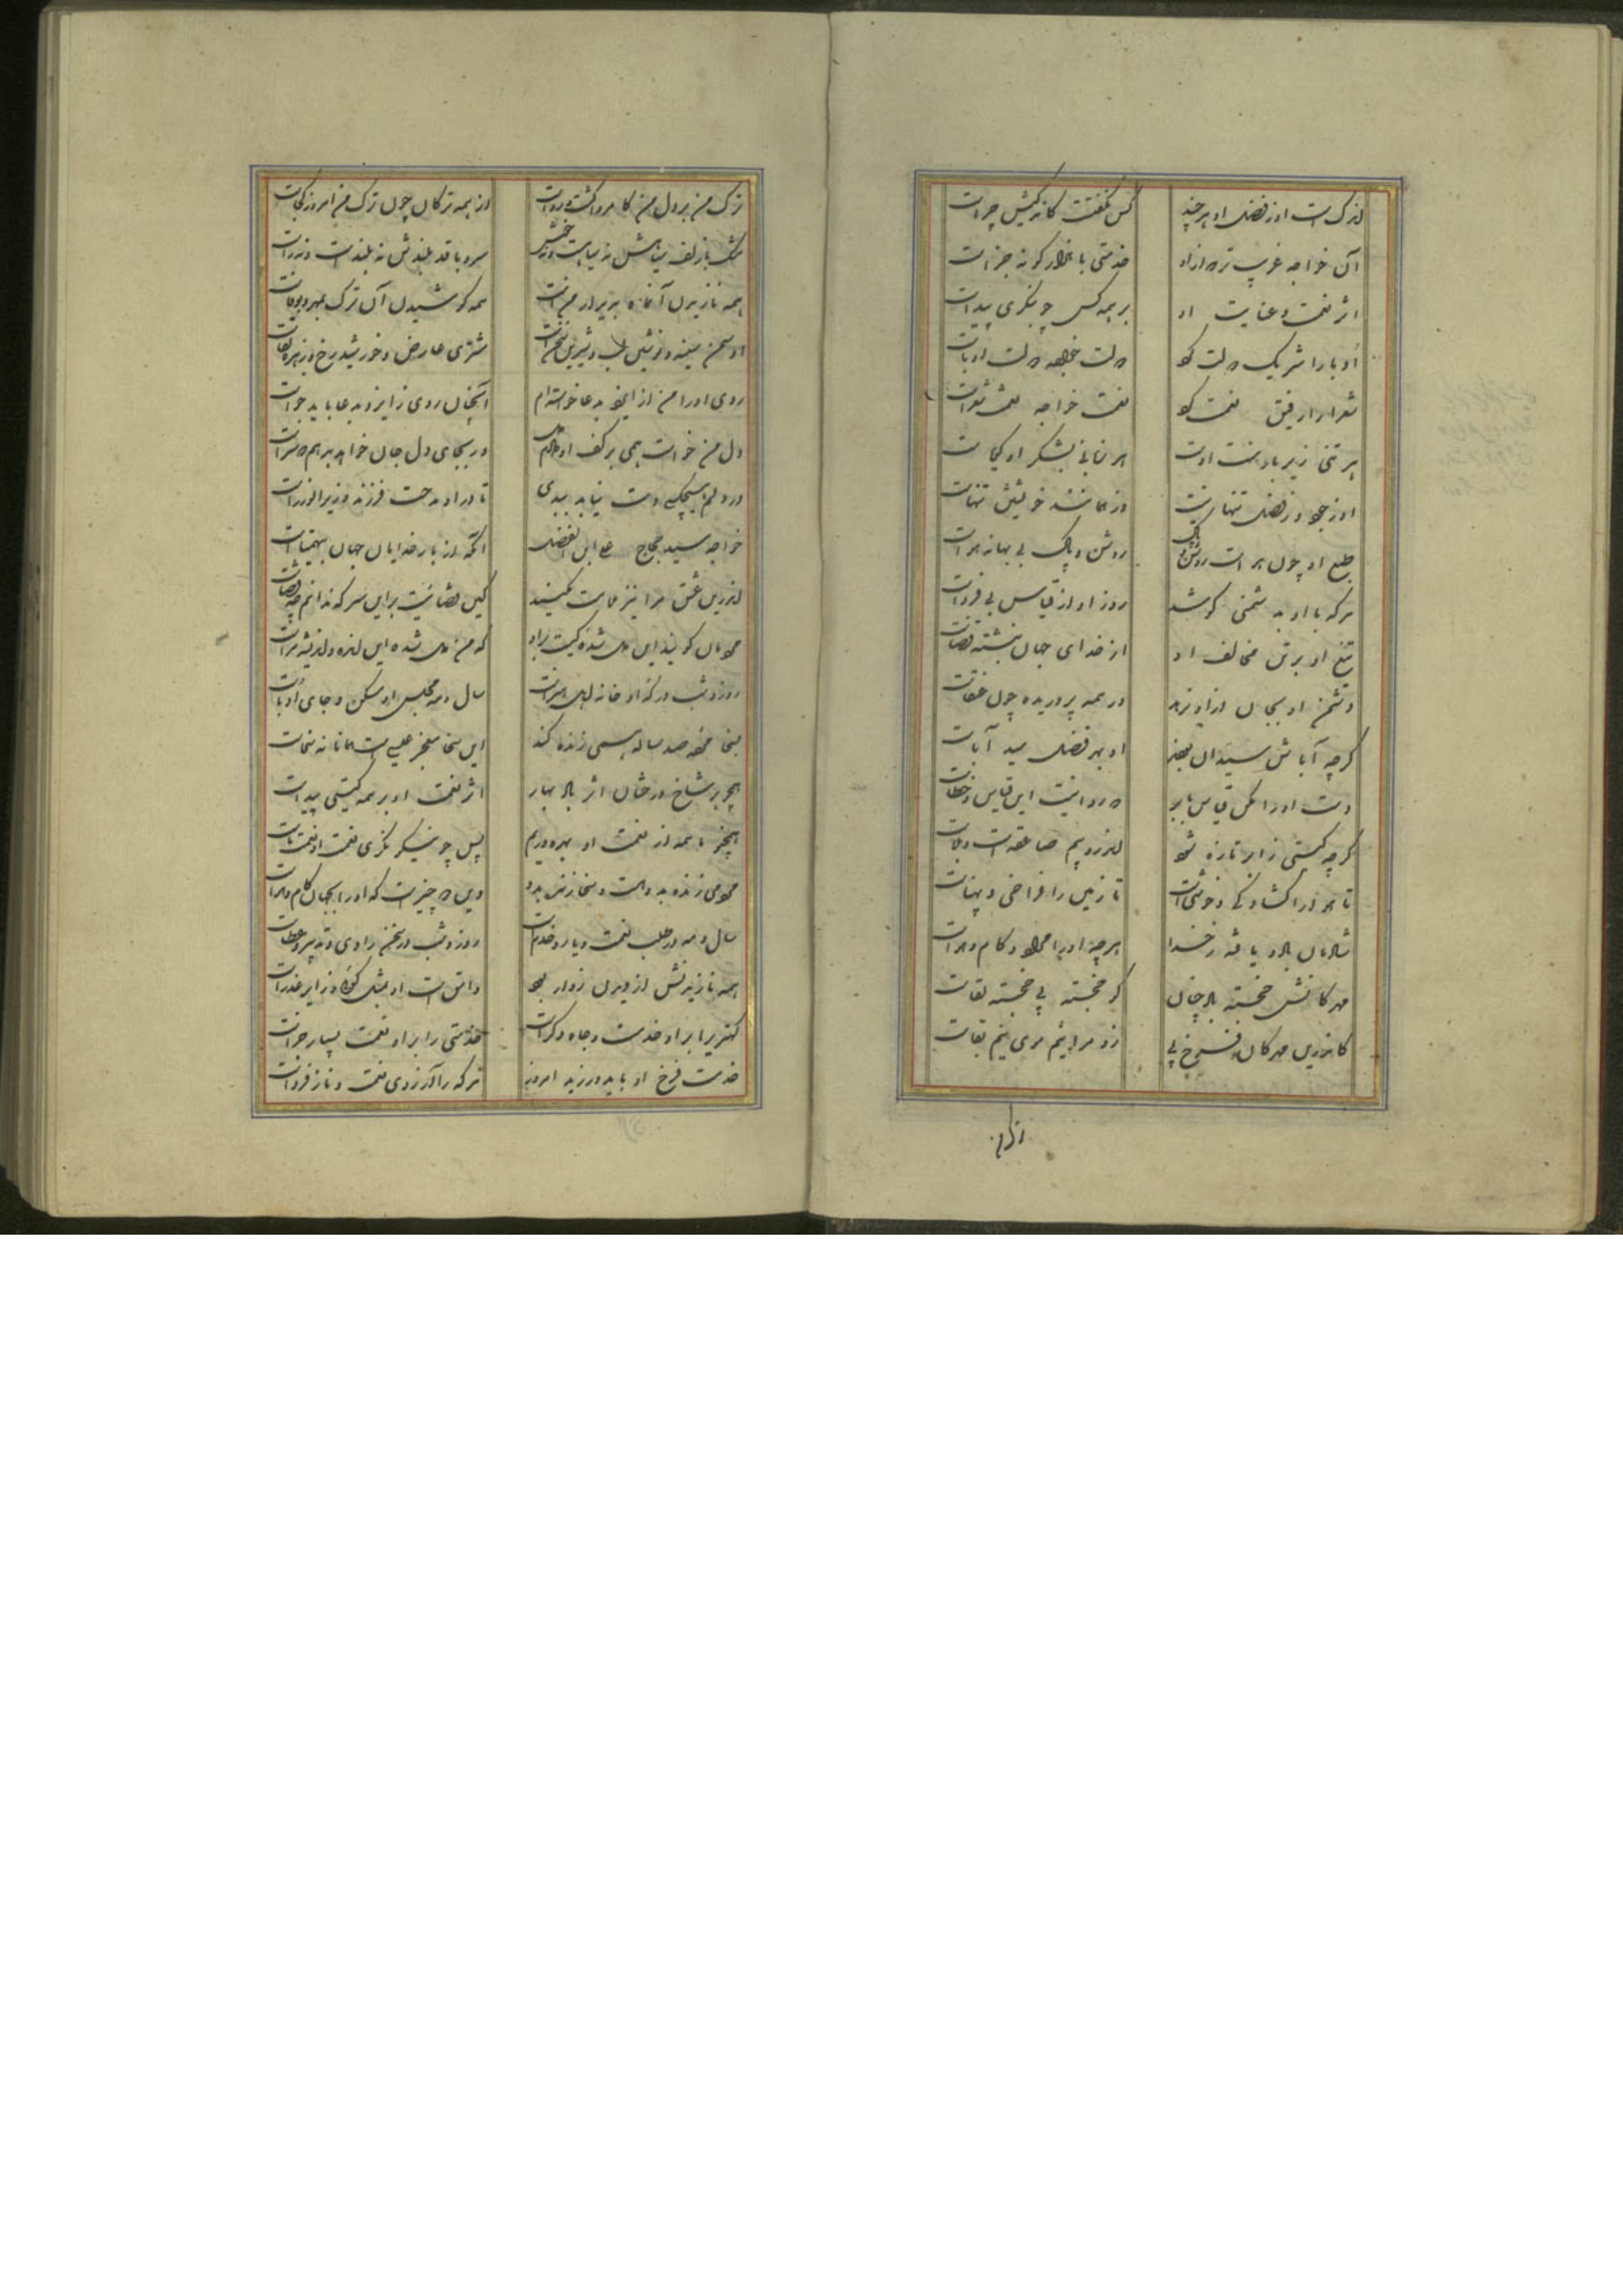 اندک است او ز فضل او هر چند کس نگفتست کاندکیش چراست
آن خواجه غریب تر دار از او خدمتی با هزار گونه جزاست
اثر نعمت و عنایت او بر همه کس چو بنگری پیداست
ادبا را شریک دولت کو دولت خواجه دولت ادباست
شعرا را رفیق نعمت کو نعمت خواجه نعمت شعراست
هر تنی زیر بار منت اوست هر زبانی بشکر او گویاست
او ز جود و ز فضل تنها نیست ور همانند خویشتن تنهاست
طبع او چون هواست روشن و پاک روشن و پاک بی بهانه هواست
هر که با او به دشمنی کوشد روز او از قیاس بی فرداست
تیغ او بر تن مخالف او از خدای جهان نبشته قضاست
دشمن او بجان از او نرهد ور همه پروریده چون عنقاست
گرچه آباش سیدان بودند او بهر فضل سید آباست
دست او را مکن قیاس بابر که روا نیست این قیاس و خطاست
گرچه گیتی ز ابر تازه شود اندرو بیم صاعقه است و بلاست
تا هوا را گشادگی و خوشیست تا زمین را فراخی و پهناست
شادمان باد و یافته ز خدا هر چه او را مراد و کام و هواست
مهرگانش خجسته باد چنان کو خجسته پی و خجسته لقاست
کاندرین مهرگان فرخ پی زو مرا نیم موی نیم بقاست
ترک من بر دل من کامروا گشت و رواست از همه ترکان چون ترک من امروز کجاست
مشک با زلف سیاهش نه سیاهست و نه خوش سرو با قد بلندش نه بلندست و نه راست
همه نازیدن آن ماه بدیدار منست همه کوشیدن آن ترک بمهر و بوفاست
او سمن سینه و نوشین لب و شیرین سخنست مشتری عارض و خورشید رخ و زهره لقاست
روی او را من از ایزد بدعا خواسته ام آنچنان روی ز ایزد بدعا باید خواست
دل من خواست همی بر کف او دادم دل ور بجای دل جان خواهد بدهم که سزاست
در دلم هیچکسی دست نیابد ببدی تا در او مدحت فرزند وزیر الوزراست
خواجه سید حجاج علی ابن الفضل آنکه از بار خدایان جهان بیهمتاست
اندرین عشق مرا نیز ملامت مکنید کاین قضائیست بر این سر که ندانم چه قضاست
مردمان گویند این دل شده کیست بر او که منم دل شده این انده و اندیشه مراست
روز و شب درگه او خانه اهل هنرست سال و مه مجلس او مسکن و جای ادباست
بسخا مرده صد ساله همی زنده کند این سخا معجز عیسی است همانا نه سخاست
همچو بر شاخ درختان اثر باد بهار اثر نعمت او بر همه گیتی پیداست
همچو ما همه از نعمت او بهره وریم پس چو نیکو نگری نعمت او نعمت ماست
مردمی زنده بدویست و سخا زنده بدو وین دو چیزیست که او را بجهان کام و هواست
سال و مه در طلب نعمت و یار و خدمست روز و شب در سخن رادی و تدبیر و عطاست
همه نازیدنش از دیدن زوار بود دانی است او بمثل گویی و زایر عذراست
کهتری را بر او خدمت و جاه و کراست خدمتی را بر او نعمت بسیار جزاست
خدمت فرخ او باید ورزید امروز هر که را آرزوی نعمت و ناز فرداست